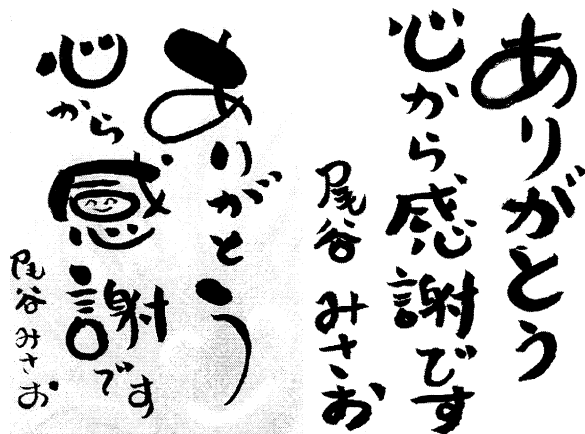 ありがとう
心から感謝です
尾谷みさお
ありがとう
心から感謝です
尾谷 みさお